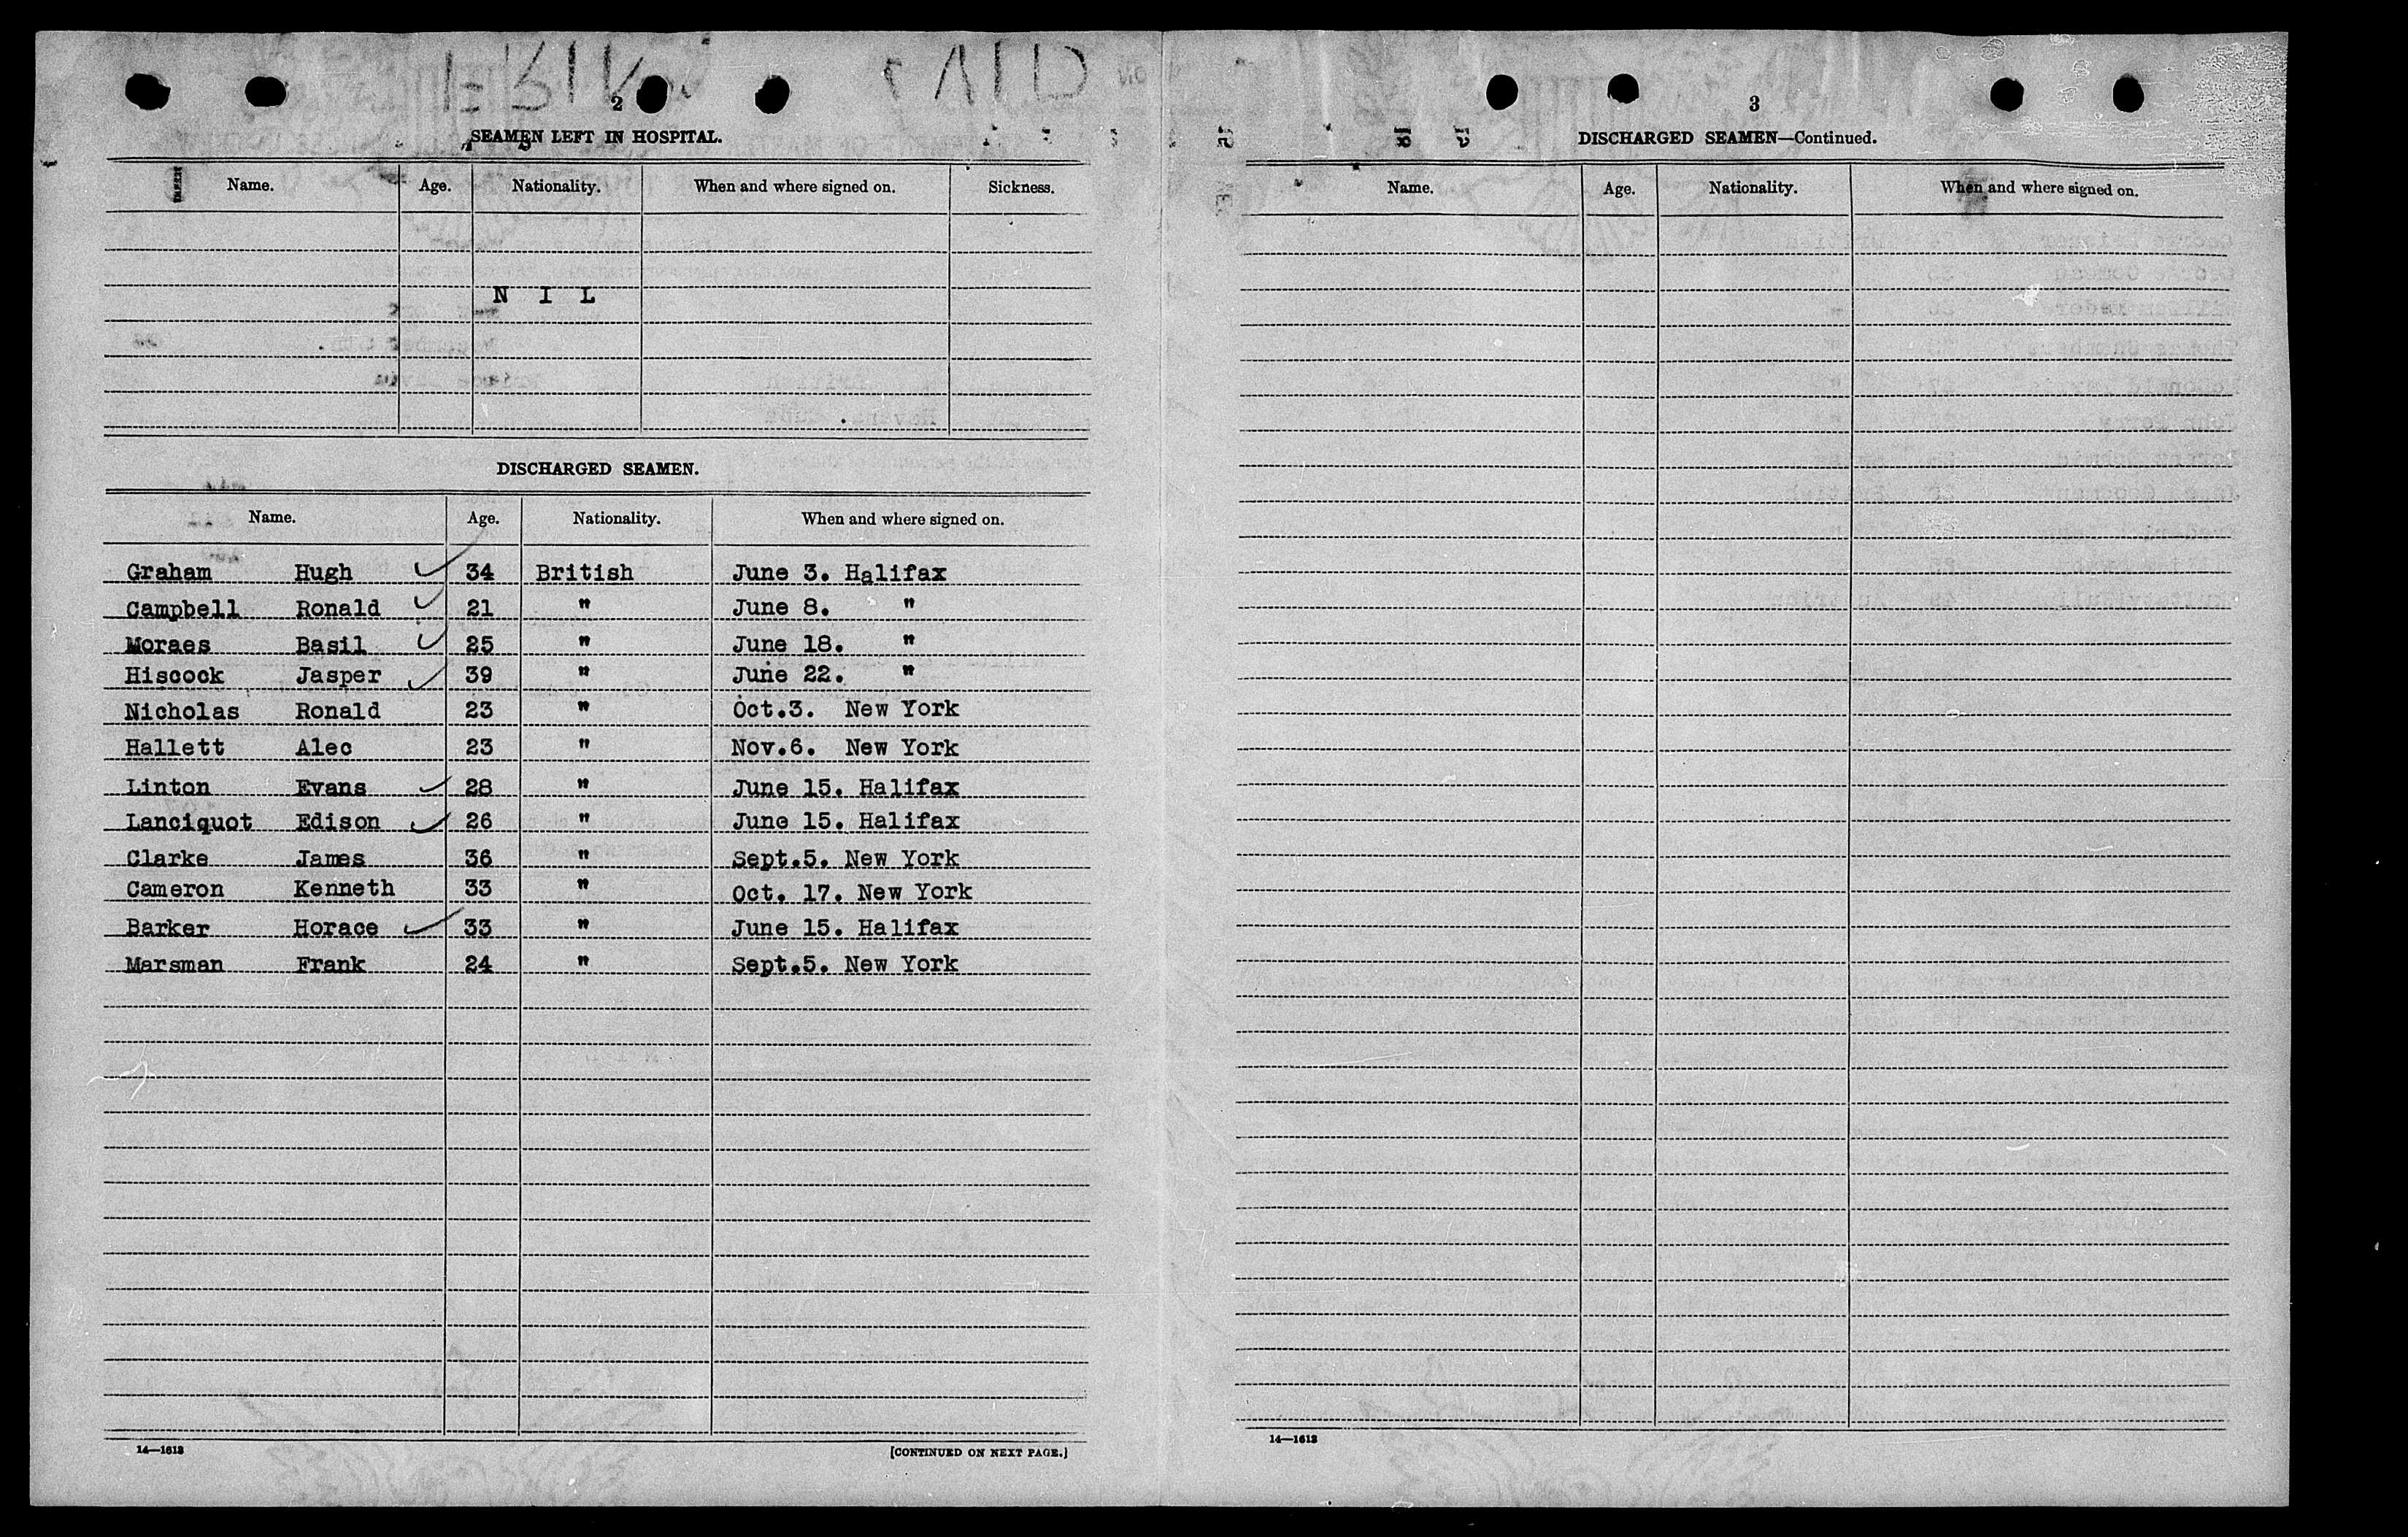 2
SEAMEN LEFT IN HOSPITAL.
Name. Age. Nationality. When and where signed on. Sickness.
N I L
DISCHARGED SEAMEN.
Name. Age. Nationality. When and where signed on.
Graham Hugh 34 British June 3. Halifax
Campbell Ronald 21 " June 8. "
Moraes Basil 25 " June 18. "
Hiscock Jasper 39 " June 22. "
Nicholas Ronald 23 " Oct.3. New York
Hallett Alec 23 " Nov.6. New York
Linton Evans 28 " June 15. Halifax
Lanciquot Edison 26 " June 15. Halifax
Clarke James 36 " Sept.5. New York
Cameron Kenneth 33 " Oct. 17. New York
Barker Horace 33 " June 15. Halifax
Marsman Frank 24 " Sept.5. New York
14—1613
[CONTINUED ON NEXT PAGE.]
3
DISCHARGED SEAMEN—Continued.
Name. Age. Nationality. When and where signed on.
14—1613